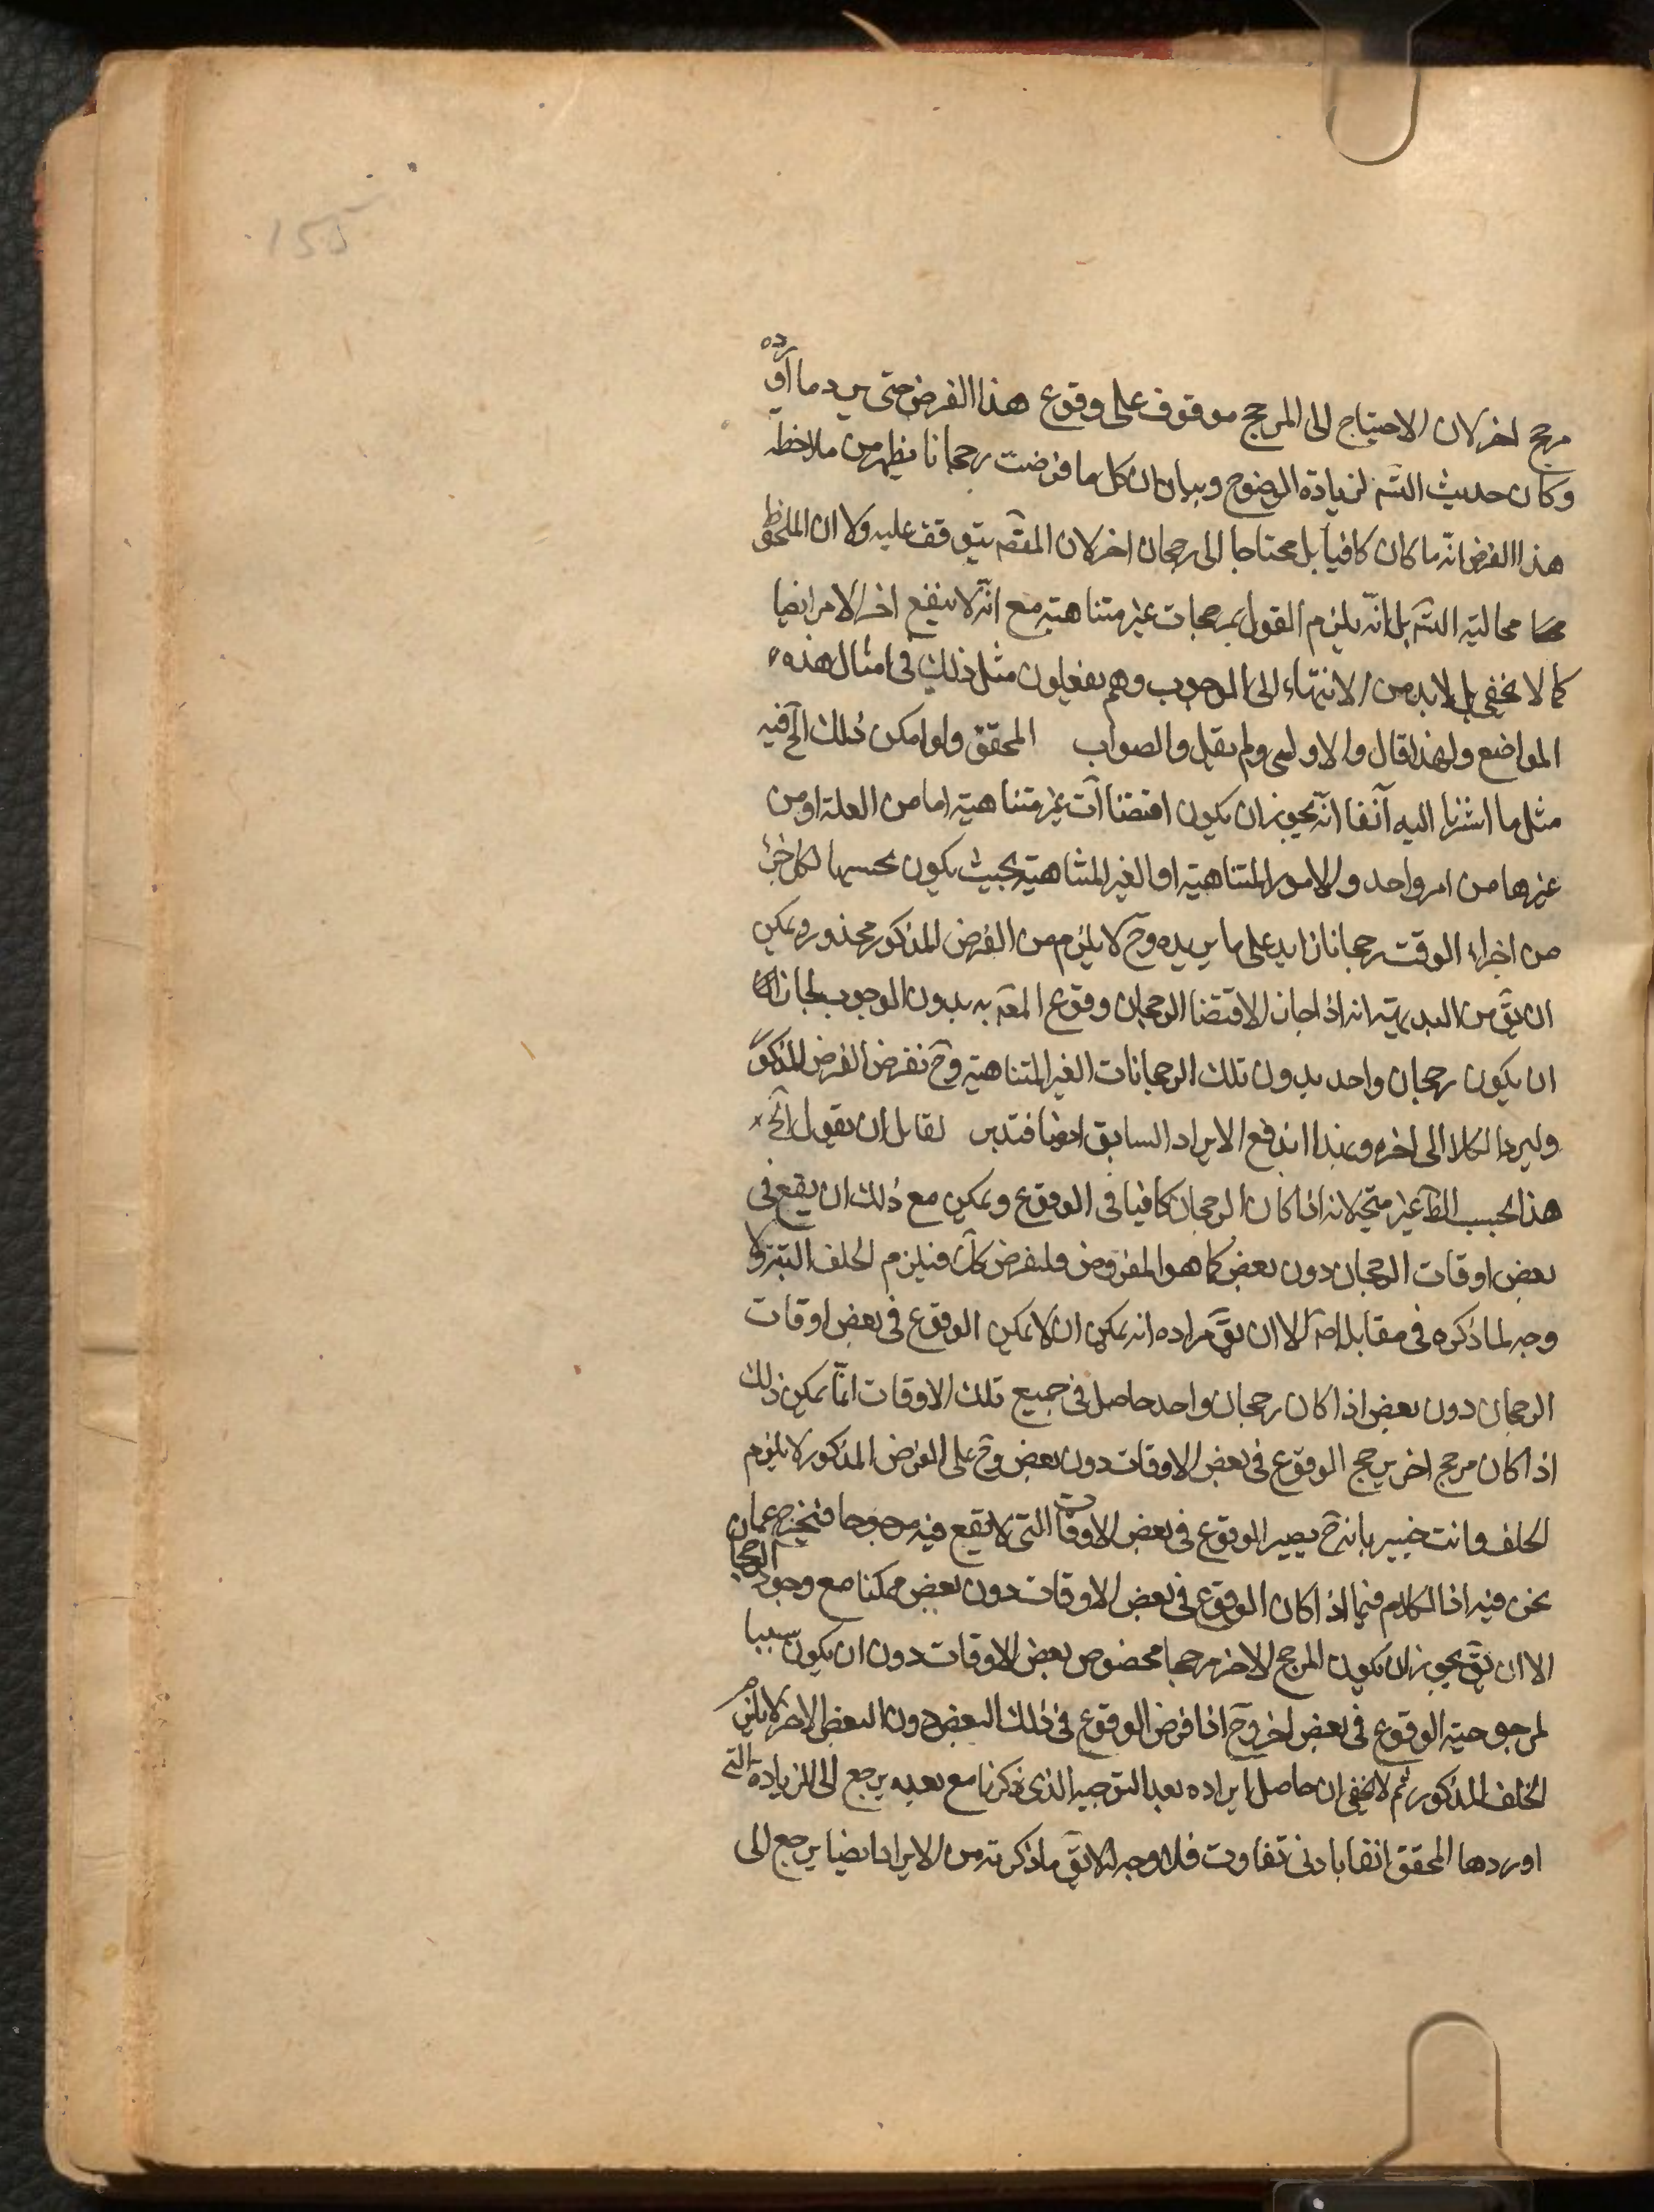 155
مرجح اخر لان الاحتياج الى المرجح موقوف على وقوع هذا الفرض حتى يرد ما اورده
وكان حديث التسَه لزيادة الوضوح وبيان ان كل ما فرضت رجحانا يظهر من ملاحظة
هذا الفرض انه ما كان كافيا بل محتاجا الى رجحان اخر لان المقصَه يتوقف عليه ولا ان الملحوظ
محالية التسَه بل انه يلزم القول بمرجحات غير متناهية مع انه لا ينفع اخر الامر ايضا
كما لا يخفى بل لا بد من الانتهاء الى الوجوب وهم يفعلون مثل ذلك فى امثال هذه
المواضع ولهذا قال والاولى ولم يقل والصواب المحقق ولو امكن ذلك الخ فيه
مثل ما اشرنا اليه آنفا انه يجوز ان يكون اقتضاآت غير متناهية اما من العلة او من
غيرها من امر واحد والامور المتناهية او الغير المتناهية بحيث يكون بحسبها لكل جزء
من اجزاء الوقت رجحانا زايد على ما يريده وحَ لا يلزم من الفرض المذكور محذور ويمكن
ان يقَ من البديهية انه اذا جاز لاقتضا الرجحان وقوع المعَه به بدون الوجوب لجاز
ان يكون رجحان واحد بدون تلك الرجحانات الغير المتناهية وحَ نفرض الفرض المذكور
وليرد الكلام الى اخره وبهذا اندفع الايراد السابق ايضا فتدبر لقايل ان يقول الخ
هذا بحسب الظَ غير متجه لانه اذا كان الرجحان كافيا فى الوقوع ويمكن مع ذلك ان يقع فى
بعض اوقات الرجحان دون بعض كما هو المفروض فلنفرض كَك فيلزم الخلف البتة ولا
وجه لما ذكره فى مقابله اصَ الا ان يقَ مراده انه يمكن ان لا يمكن الوقوع فى بعض اوقات
الرجحان دون بعض اذا كان رجحان واحد حاصل فى جميع تلك الاوقات انما يمكن ذلك
اذا كان مرجح اخر يرجح الوقوع فى بعض الاوقات دون بعض وحَ على الفرض المذكور لا يلزم
الخلف وانت خبير بانه حَ يصير الوقوع فى بعض الاوقات التى لا يقع فيه مرجوحا فيخرج عما
نحن فيه اذا الكلام فيما اذا كان الوقوع فى بعض الاوقات دون بعض ممكنا مع وجود الرجحان
الا ان يقَ يجوز ان يكون المرجح الاخر مرجحا مخصوص بعض الاوقات دون ان يكون سببا
لمرجوحية الوقوع فى بعض اخر وحَ اذا فرض الوقوع فى ذلك البعض دون البعض الاخر لا يلزم
الخلف المذكور ثم لا يخفى ان حاصل ايراده بعد التوجيه الذى ذكرنا مع بعده يرجع الى الزيادة التى
اوردها المحقق انفا بادنى تفاوت فلا وجه له لا يقَ ما ذكرته من الايراد ايضا يرجع الى